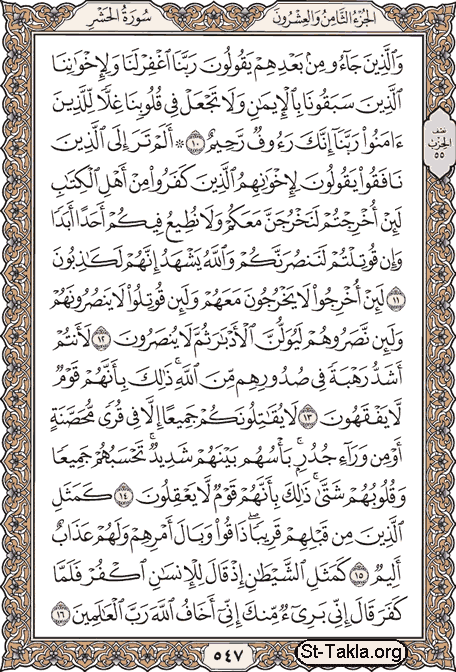 سُورَةُ الحَشْرِ
الجُزْءُ الثَّامِنُ وَالعِشْرُونَ
وَالَّذِينَ جَآءُو مِنۢ بَعْدِهِمْ يَقُولُونَ رَبَّنَا ٱغْفِرْ لَنَا وَلِإِخْوَٰنِنَا
ٱلَّذِينَ سَبَقُونَا بِٱلْإِيمَٰنِ وَلَا تَجْعَلْ فِى قُلُوبِنَا غِلًّا لِّلَّذِينَ
ءَامَنُوا۟ رَبَّنَآ إِنَّكَ رَءُوفٌ رَّحِيمٌ ١٠ ۞ أَلَمْ تَرَ إِلَى ٱلَّذِينَ
نصف
الحزب
٥٥
نَافَقُوا۟ يَقُولُونَ لِإِخْوَٰنِهِمُ ٱلَّذِينَ كَفَرُوا۟ مِنْ أَهْلِ ٱلْكِتَٰبِ
لَئِنْ أُخْرِجْتُمْ لَنَخْرُجَنَّ مَعَكُمْ وَلَا نُطِيعُ فِيكُمْ أَحَدًا أَبَدًا
وَإِن قُوتِلْتُمْ لَنَنصُرَنَّكُمْ وَٱللَّهُ يَشْهَدُ إِنَّهُمْ لَكَٰذِبُونَ
١١ لَئِنْ أُخْرِجُوا۟ لَا يَخْرُجُونَ مَعَهُمْ وَلَئِن قُوتِلُوا۟ لَا يَنصُرُونَهُمْ
وَلَئِن نَّصَرُوهُمْ لَيُوَلُّنَّ ٱلْأَدْبَٰرَ ثُمَّ لَا يُنصَرُونَ ١٢ لَأَنتُمْ
أَشَدُّ رَهْبَةً فِى صُدُورِهِم مِّنَ ٱللَّهِ ۚ ذَٰلِكَ بِأَنَّهُمْ قَوْمٌ
لَّا يَفْقَهُونَ ١٣ لَا يُقَٰتِلُونَكُمْ جَمِيعًا إِلَّا فِى قُرًى مُّحَصَّنَةٍ
أَوْ مِن وَرَآءِ جُدُرٍۭ ۚ بَأْسُهُم بَيْنَهُمْ شَدِيدٌ ۚ تَحْسَبُهُمْ جَمِيعًا
وَقُلُوبُهُمْ شَتَّىٰ ۚ ذَٰلِكَ بِأَنَّهُمْ قَوْمٌ لَّا يَعْقِلُونَ ١٤ كَمَثَلِ
ٱلَّذِينَ مِن قَبْلِهِمْ قَرِيبًا ۖ ذَاقُوا۟ وَبَالَ أَمْرِهِمْ وَلَهُمْ عَذَابٌ
أَلِيمٌ ١٥ كَمَثَلِ ٱلشَّيْطَٰنِ إِذْ قَالَ لِلْإِنسَٰنِ ٱكْفُرْ فَلَمَّا
كَفَرَ قَالَ إِنِّى بَرِىٓءٌ مِّنكَ إِنِّىٓ أَخَافُ ٱللَّهَ رَبَّ ٱلْعَٰلَمِينَ ١٦
٥٤٧
St-Takla.org